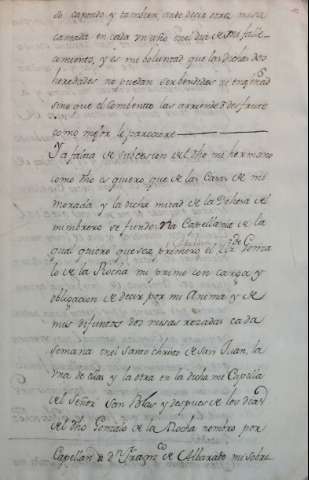 de capondo y tambien ante decir otra misa
cantada en cada un año en el dia de mi falle-
cimiento, y es mi boluntad que las dichas dos
heredades no puedan ser bendidas ni
sino que el combento las arriende o desfrute
como mejor le pareciere
Y a falta de subcesion del dho mi hermano
como dho es quiero que de las Casas de mi
morada y la dicha mitad de la Dehesa del
se funde vna Capellania de la
qual quiero que sea primero el Gonza
lo de la Rocha mi primo con carga y
obligacion de decir por mi Anima y de
mis difuntos dos misas rezadas cada
semana en el Santo christo de San Juan, la
vna de ellas y la otra en la dicha mi Capilla
del Señor San Blas y despues de los dias
del dho Gonzalo de la Rocha nombro por
Capellan a Dn Franco de Alvarado mi sobri